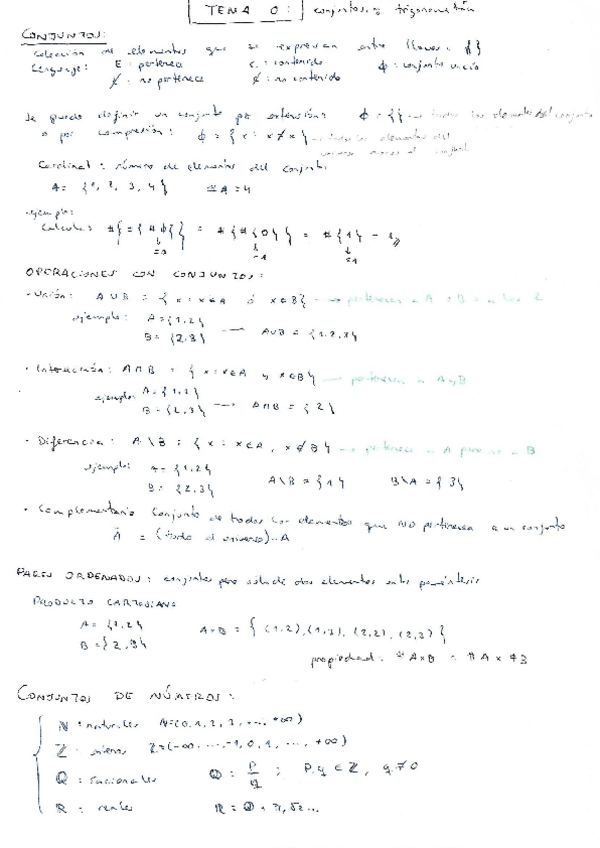 TEMA 0: conjuntos y trigonometría
CONJUNTOS:
Colección de elementos que se expresan entre llaves: {}
Lenguaje: ∈: pertenece ⊂: contenido ϕ: conjunto vacío
∉: no pertenece ⊄: no contenido
Se puede definir un conjunto por extensión: ϕ = {} → todos los elementos del conjunto
o por compresión: ϕ = {x: x≠x} → todos los elementos del
Cardinal: número de elementos del conjunto
A = {1, 2, 3, 4} #A = 4
ejemplo:
Calcula: #{ = {#ϕ}} = #{#{0}} = #{1} = 1
=0 =1 =1
OPERACIONES CON CONJUNTOS:
• Unión: A∪B = {x: x∈A ó x∈B} → pertenece a A o B o a los 2
ejemplo: A={1,2}
B={2,3} → A∪B = {1,2,3}
• Intersección: A∩B = {x: x∈A y x∈B} → pertenecen a A y B
ejemplo: A={1,2}
B={2,3} → A∩B = {2}
• Diferencia: A\B = {x: x∈A, x∉B} → pertenece a A pero no a B
ejemplo: A={1,2}
B={2,3} A\B={1} B\A={3}
• Complementario: Conjunto de todos los elementos que NO pertenecen a un conjunto
Ā = (todo el universo) - A
PARES ORDENADOS: conjuntos pero sólo de dos elementos entre paréntesis
PRODUCTO CARTESIANO
A={1,2} A×B = {(1,2),(1,3),(2,2),(2,3)}
B={2,3}
propiedad: #A×B = #A × #B
CONJUNTOS DE NÚMEROS:
ℕ: naturales ℕ=(0,1,2,3,...,+∞)
ℤ: enteros ℤ=(-∞,...,-1,0,1,...,+∞)
ℚ: racionales ℚ = p/q ; p,q ∈ ℤ, q≠0
ℝ: reales ℝ = ℚ + π, √2...